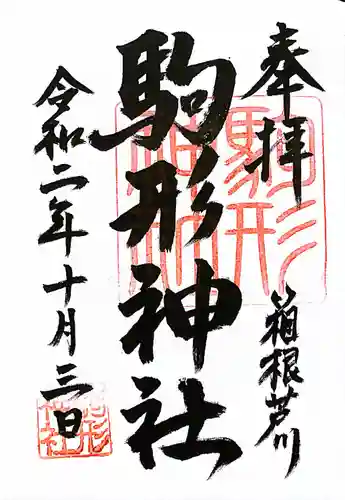 奉拝
箱根芦川
駒形神社
令和二年十月三日
駒形神社
駒形神社